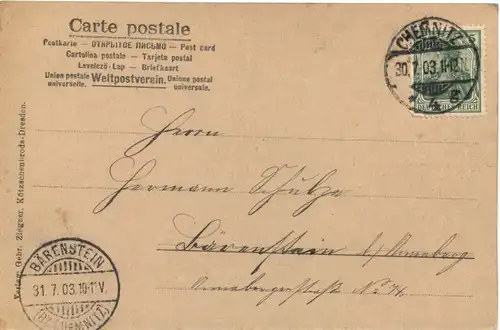 Carte postale
Postkarte — ОТКРЫТОЕ ПИСЬМО — Post card
Cartolina postale — Tarjeta postal
Levelező-Lap — Briefkaart
Union postale universelle. Weltpostverein. Unione postale universale.
CHEMNITZ
30.7.03.11-12
5
DEUTSCHES REICH
Herrn
Hermann Schulze
Bärenstein b/ Annaberg
Annabergerstraße No
BÄRENSTEIN
31.7.03.10-11V.
(BZ. CHEMNITZ)
Verlag: Gebr. Ziegner, Kötzschenbroda-Dresden.